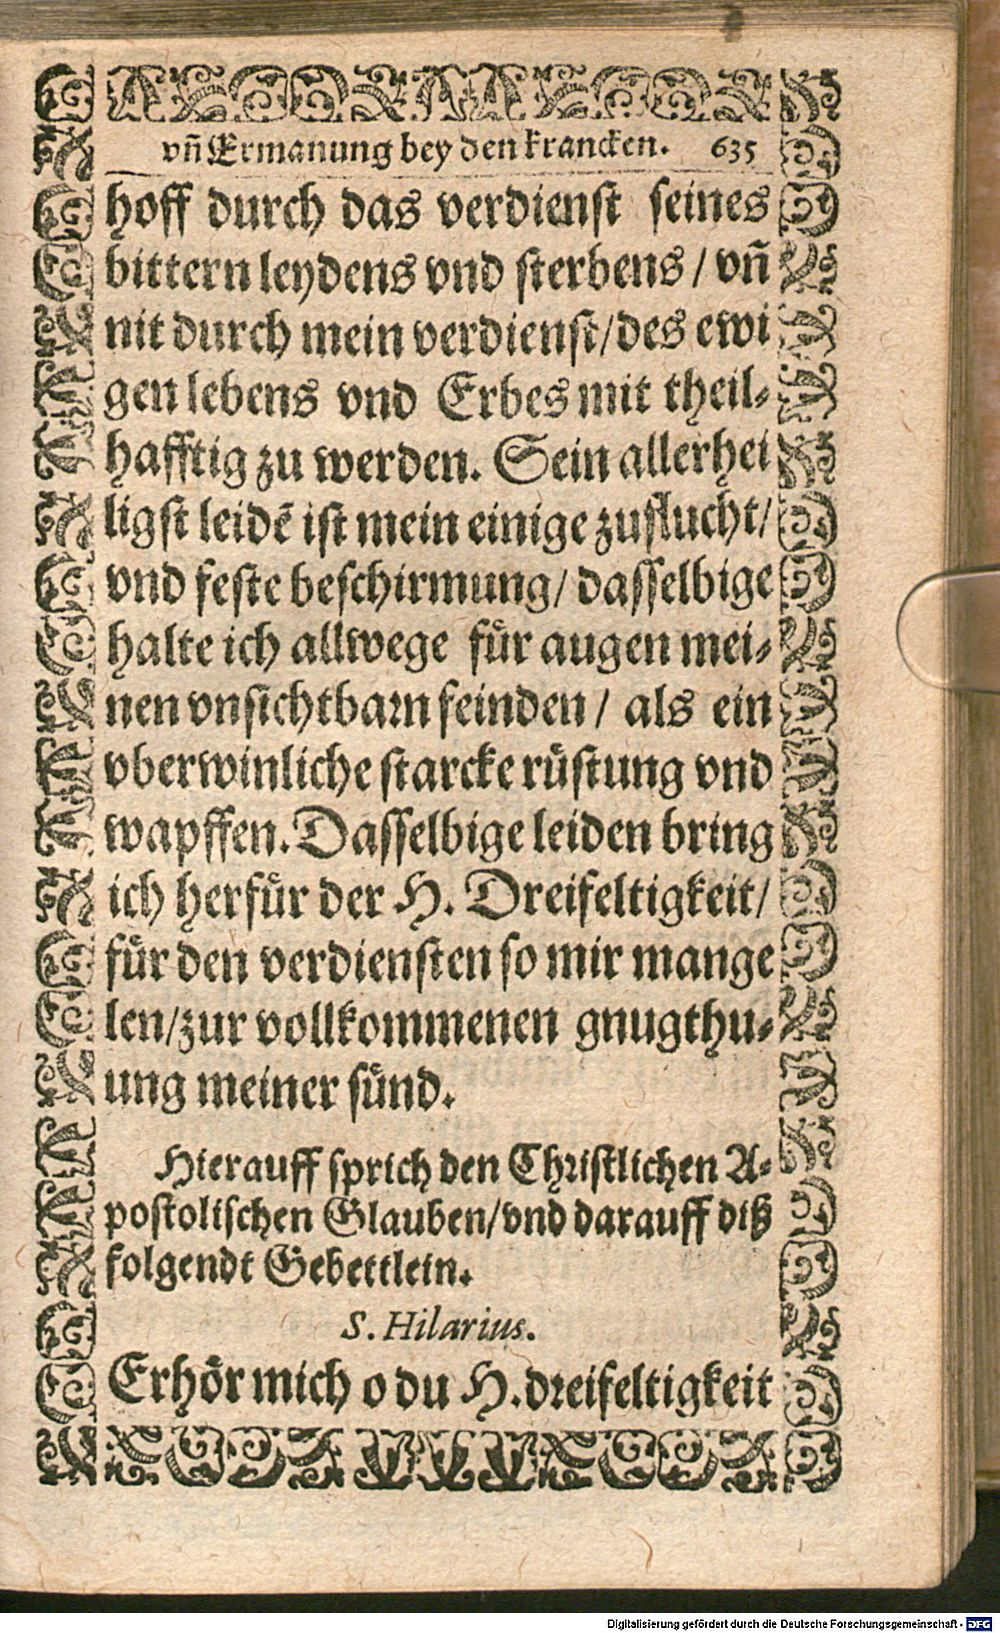 vñ Ermanung bey den krancken. 635
hoff durch das verdienst seines
bittern leydens vnd sterbens / vñ
nit durch mein verdienst/des ewi
gen lebens vnd Erbes mit theil-
hafftig zu werden. Sein allerhei
ligst leidē ist mein einige zuflucht/
vnd feste beschirmung/ dasselbige
halte ich allwege fuͤr augen mei-
nen vnsichtbarn feinden / als ein
vberwinliche starcke ruͤstung vnd
wapffen. Dasselbige leiden bring
ich herfuͤr der H. Dreifeltigkeit/
fuͤr den verdiensten so mir mange
len/zur vollkommenen gnugthu-
ung meiner suͤnd.
Hierauff sprich den Christlichen A-
postolischen Glauben/vnd darauff diß
folgendt Gebettlein.
S. Hilarius.
Erhoͤr mich o du H. dreifeltigkeit
Digitalisierung gefördert durch die Deutsche Forschungsgemeinschaft - DFG